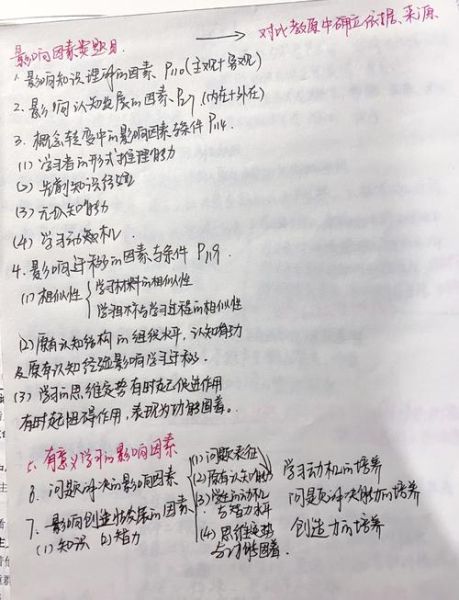 影响因素类题目. → 对比教原中确立依据、来源
1. 影响知识理解的因素 P110 (主观+客观)
2. 影响认知发展的因素 P27 (内在+外在)
3. 概念转变中的影响因素与条件 P114.
(1) 学习者的形式推理能力
(2) 先前知识经验
(3) 元认知能力
(4) 学习动机.
4. 影响迁移的因素与条件 P119
(1) 相似性 { 学习材料的相似性
学习过程的相似性
(2) 原有认知结构的组织水平, 认知能力
及原有认知经验影响学习迁移.
(3) 学习的思维定势有时起促进作用
有时起阻碍作用, 表现为功能固着。
5. 有意义学习的影响因素
6. 问题解决的影响因素
(1) 问题表征
(2) 原有认知
(3) 学生的动机
与智力水平
(4) 思维定势
与功能固着.
7. 影响创造性发展的因素
(1) 知识 (2) 智力
学习动机的培养
问题解决能力的培养
创造力的培养